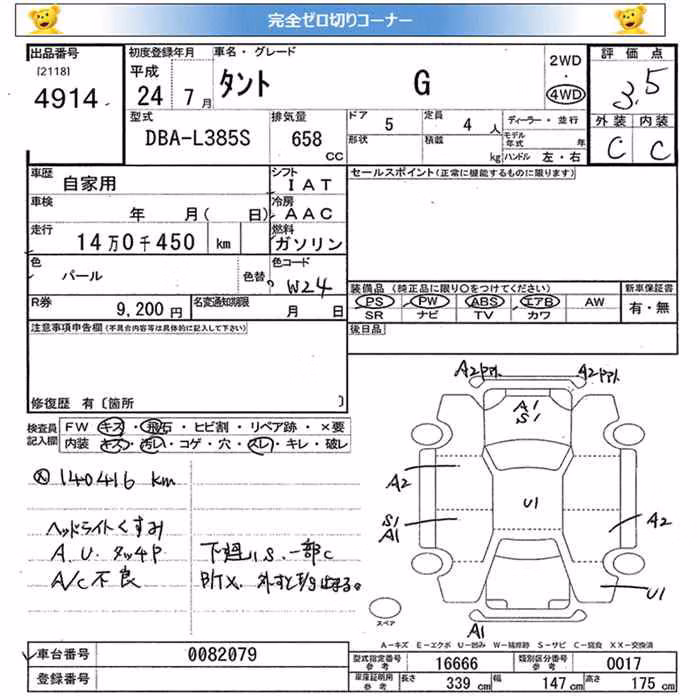 完全ゼロ切りコーナー
出品番号
[2118]
4914
初度登録年月
平成
24 7月
車名・グレード
タント G
2WD
・
4WD
評価点
3.5
外装 内装
C C
型式
DBA-L385S
排気量
658
CC
ドア 5
定員 4 人
形状
積載 kg
ディーラー・並行
モデル年式 年
ハンドル 左・右
車歴
自家用
シフト
IAT
車検
年 月( 日)
冷房
AAC
走行
14万0千450 km
燃料
ガソリン
色
パール
色替
色コード
W24
R券
9,200円
名変通知期限
月 日
セールスポイント(正常に機能するものに限ります)
装備品 (純正品に限り○をつけてください)
PS PW ABS エアB AW
SR ナビ TV カワ
新車保証書
有・無
後日品
注意事項申告欄(不具合内容等は具体的に記入して下さい)
修復歴 有〔箇所 〕
検査員記入欄
FW キズ・飛石・ヒビ割・リペア跡・×要
内装 キズ・汚れ・コゲ・穴・スレ・キレ・破レ
140416 km
ヘッドライトくすみ
A.U.タッチP
A/C不良
下廻りS.一部C
A2
A2
A1
S1
A2
U1
S1
A1
A2
U1
A1
スペア
A-キズ E-エクボ U-凹み W-補修跡 S-サビ C-腐食 XX-交換済
車台番号 0082079
登録番号
型式指定番号参考 16666
類別区分番号参考 0017
車庫証明用参考 長さ 339 cm 幅 147 cm 高さ 175 cm